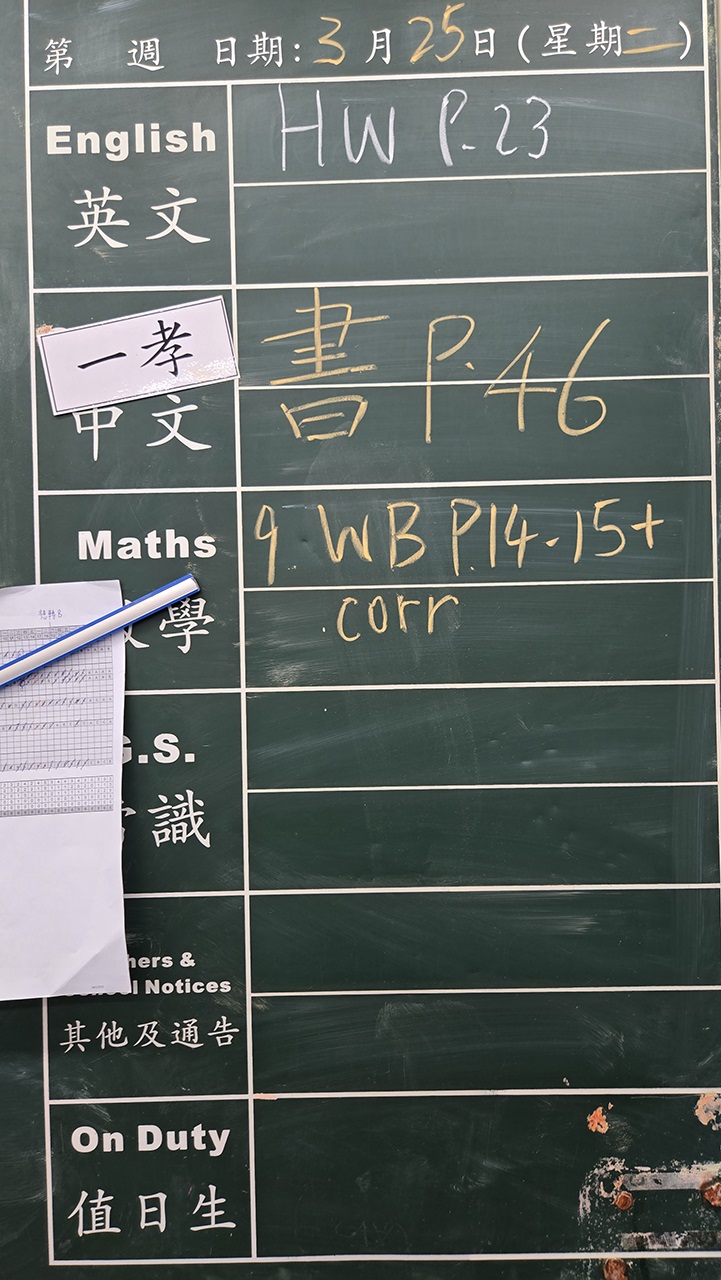 第 週 日期: 3月25日(星期二)
English
英文
HW P.23
一孝
中文
書 P.46
Maths
學
9 WB P.14-15+
corr
G.S.
識
Notices
其他及通告
On Duty
值日生